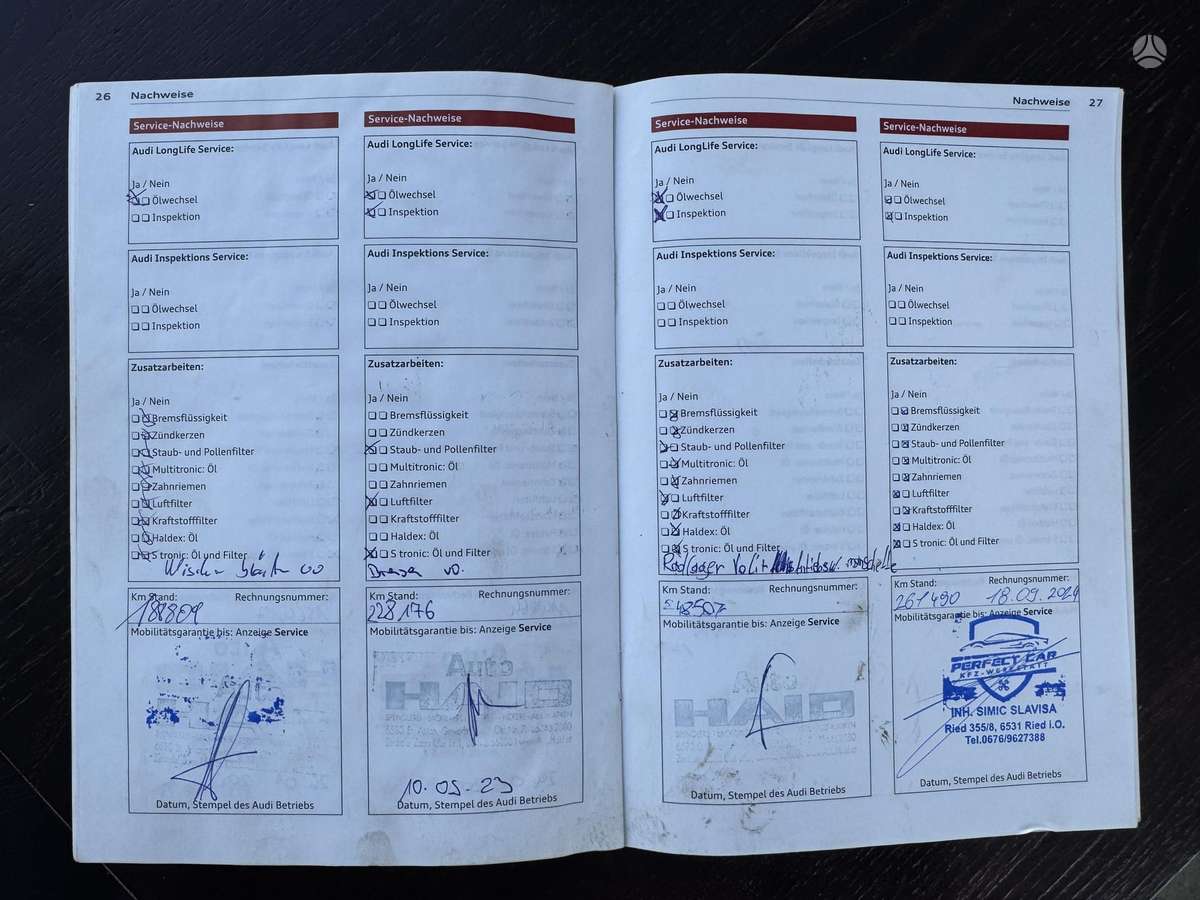 26 Nachweise
Service-Nachweise
Audi LongLife Service:
Ja / Nein
Ölwechsel
Inspektion
Audi Inspektions Service:
Ja / Nein
Ölwechsel
Inspektion
Zusatzarbeiten:
Ja / Nein
Bremsflüssigkeit
Zündkerzen
Staub- und Pollenfilter
Multitronic: Öl
Zahnriemen
Luftfilter
Kraftstofffilter
Haldex: Öl
S tronic: Öl und Filter
Km Stand: Rechnungsnummer:
Mobilitätsgarantie bis: Anzeige Service
Datum, Stempel des Audi Betriebs
Service-Nachweise
Audi LongLife Service:
Ja / Nein
Ölwechsel
Inspektion
Audi Inspektions Service:
Ja / Nein
Ölwechsel
Inspektion
Zusatzarbeiten:
Ja / Nein
Bremsflüssigkeit
Zündkerzen
Staub- und Pollenfilter
Multitronic: Öl
Zahnriemen
Luftfilter
Kraftstofffilter
Haldex: Öl
S tronic: Öl und Filter
Km Stand: Rechnungsnummer:
228176
Mobilitätsgarantie bis: Anzeige Service
10.05.23
Datum, Stempel des Audi Betriebs
Nachweise 27
Service-Nachweise
Audi LongLife Service:
Ja / Nein
Ölwechsel
Inspektion
Audi Inspektions Service:
Ja / Nein
Ölwechsel
Inspektion
Zusatzarbeiten:
Ja / Nein
Bremsflüssigkeit
Zündkerzen
Staub- und Pollenfilter
Multitronic: Öl
Zahnriemen
Luftfilter
Kraftstofffilter
Haldex: Öl
S tronic: Öl und Filter
Radlager
Km Stand: Rechnungsnummer:
Mobilitätsgarantie bis: Anzeige Service
Datum, Stempel des Audi Betriebs
Service-Nachweise
Audi LongLife Service:
Ja / Nein
Ölwechsel
Inspektion
Audi Inspektions Service:
Ja / Nein
Ölwechsel
Inspektion
Zusatzarbeiten:
Ja / Nein
Bremsflüssigkeit
Zündkerzen
Staub- und Pollenfilter
Multitronic: Öl
Zahnriemen
Luftfilter
Kraftstofffilter
Haldex: Öl
S tronic: Öl und Filter
Km Stand: Rechnungsnummer:
261490 18.09.2024
Mobilitätsgarantie bis: Anzeige Service
PERFECT CAR
KFZ-WERKSTATT
INH. SIMIC SLAVISA
Ried 355/8, 6531 Ried i.O.
Tel.0676/9627388
Datum, Stempel des Audi Betriebs